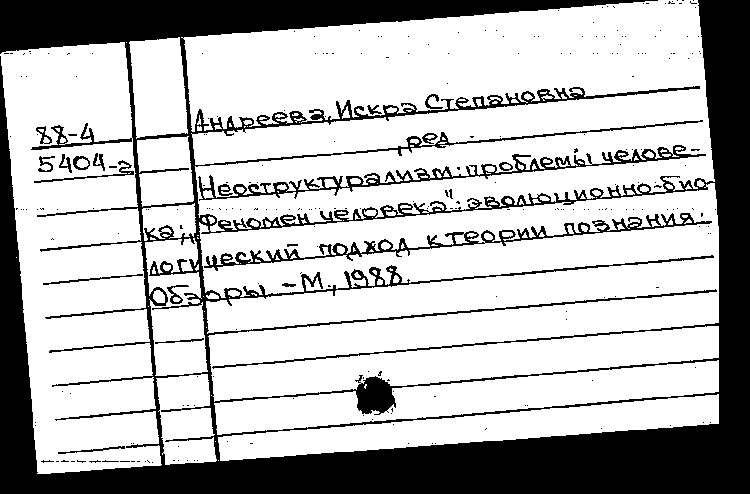 88-4
5404-г
Андреева, Искра Степановна
, ред.
Неоструктурализм: проблемы челове-
ка; "Феномен человека": эволюционно-био-
логический подход к теории познания:
Обзоры. - М., 1988.